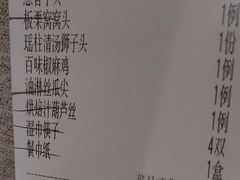 板栗窝窝头 1例
瑶柱清汤狮子头 1份
百味椒麻鸡 1例
油淋丝瓜尖 1例
烘蛤汁葫芦丝 1例
湿巾筷子 4双
餐巾纸 1盒